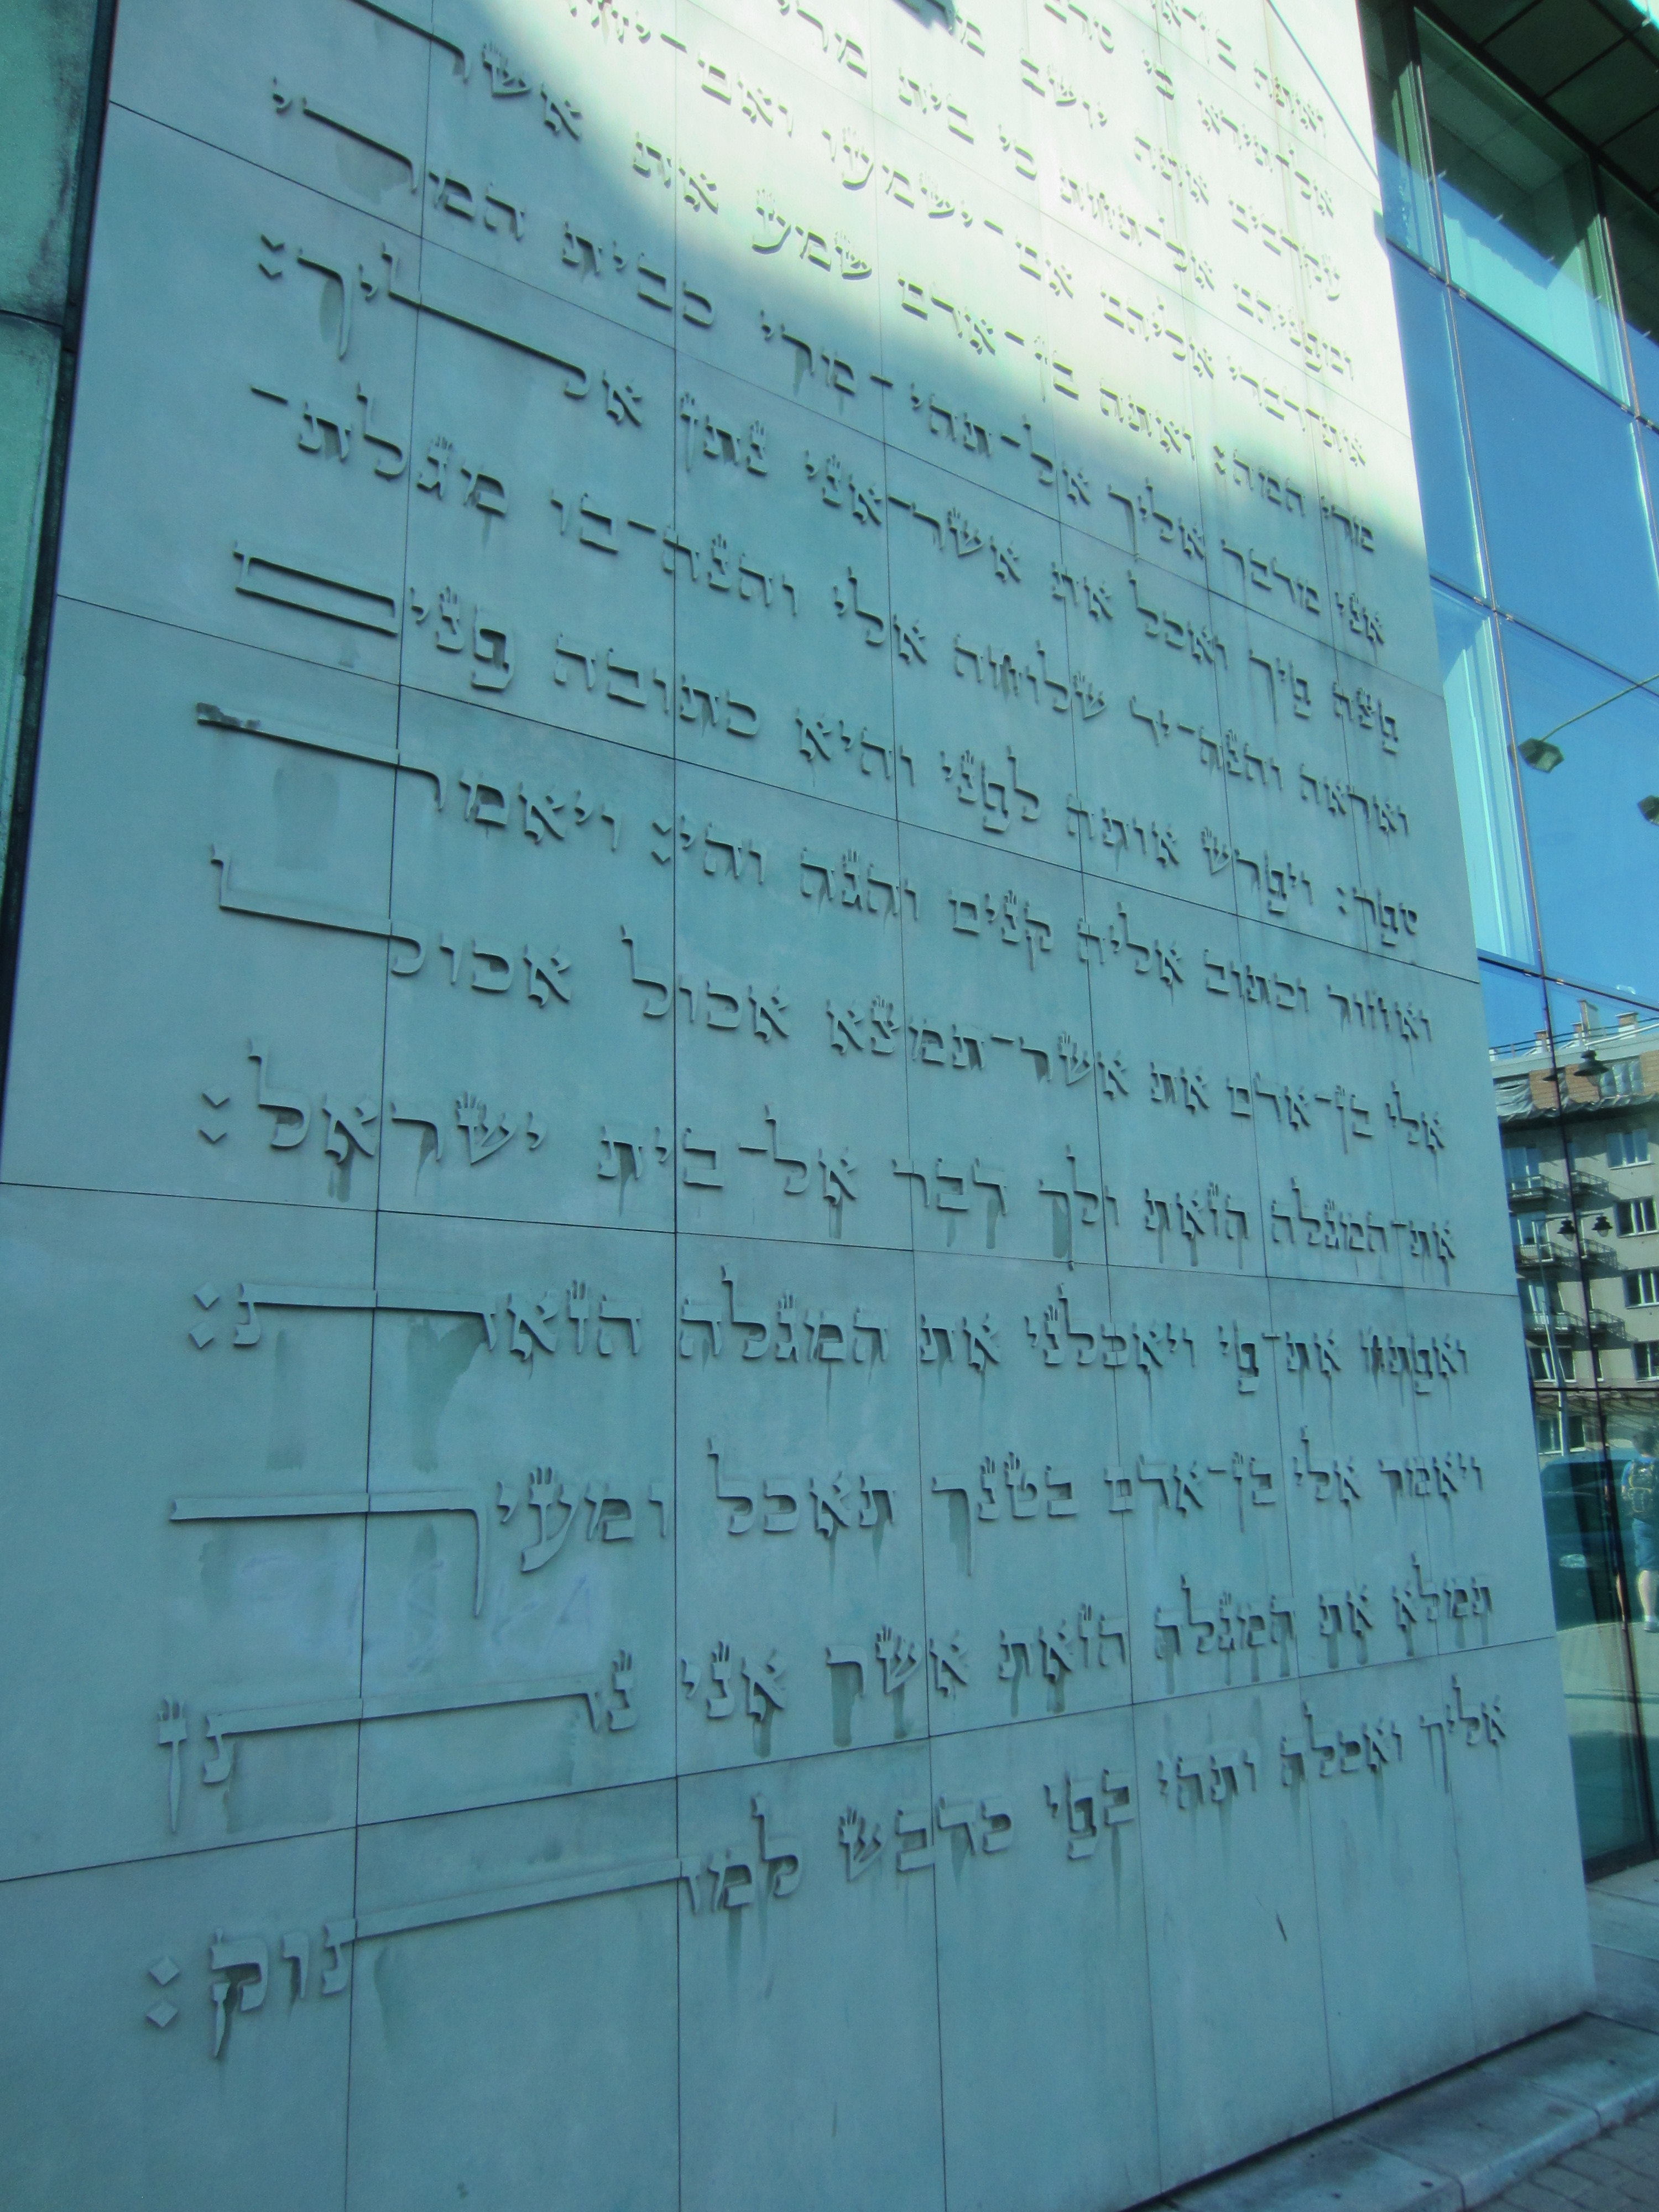 ואתה
אל־תירא כי
עקרבים אתה יושב
ומפניהם אל־תחת כי בית מרי
את־דברי אליהם אם־ישמעו ואם־
מרי המה: ואתה בן־אדם שמע את אשר
אני מדבר אליך אל־תהי־מרי כבית המרי
פצה פיך ואכל את אשר־אני נתן אליך:
ואראה והנה־יד שלוחה אלי והנה־בו מגלת־
ספר: ויפרש אותה לפני והיא כתובה פנים
ואחור וכתוב אליה קנים והגה והי: ויאמר
אלי בן־אדם את אשר־תמצא אכול אכול
את־המגלה הזאת ולך דבר אל־בית ישראל:
ואפתח את־פי ויאכלני את המגלה הזאת:
ויאמר אלי בן־אדם בטנך תאכל ומעיך
תמלא את המגלה הזאת אשר אני נתן
אליך ואכלה ותהי בפי כדבש למתוק: